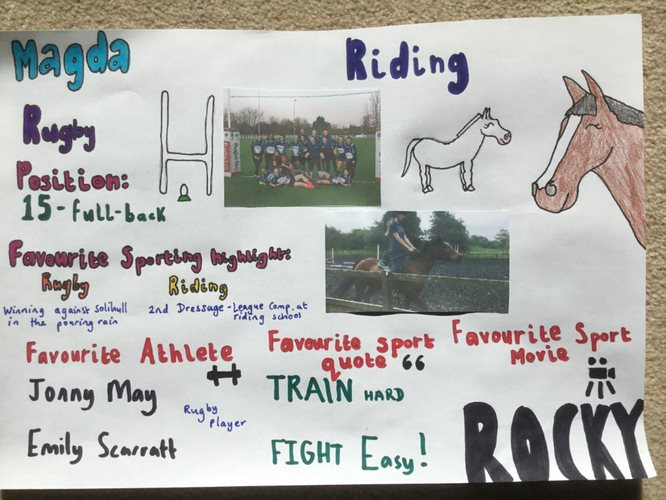 Magda
Riding
Rugby
Position:
15 - Full-back
Favourite Sporting highlight:
Rugby
Riding
Winning against Solihull
in the pouring rain
2nd Dressage - League Comp. at
riding school
Favourite Athlete
Jonny May
Rugby
player
Emily Scarratt
Favourite sport
quote “
TRAIN HARD
FIGHT Easy!
Favourite Sport
Movie
ROCKY